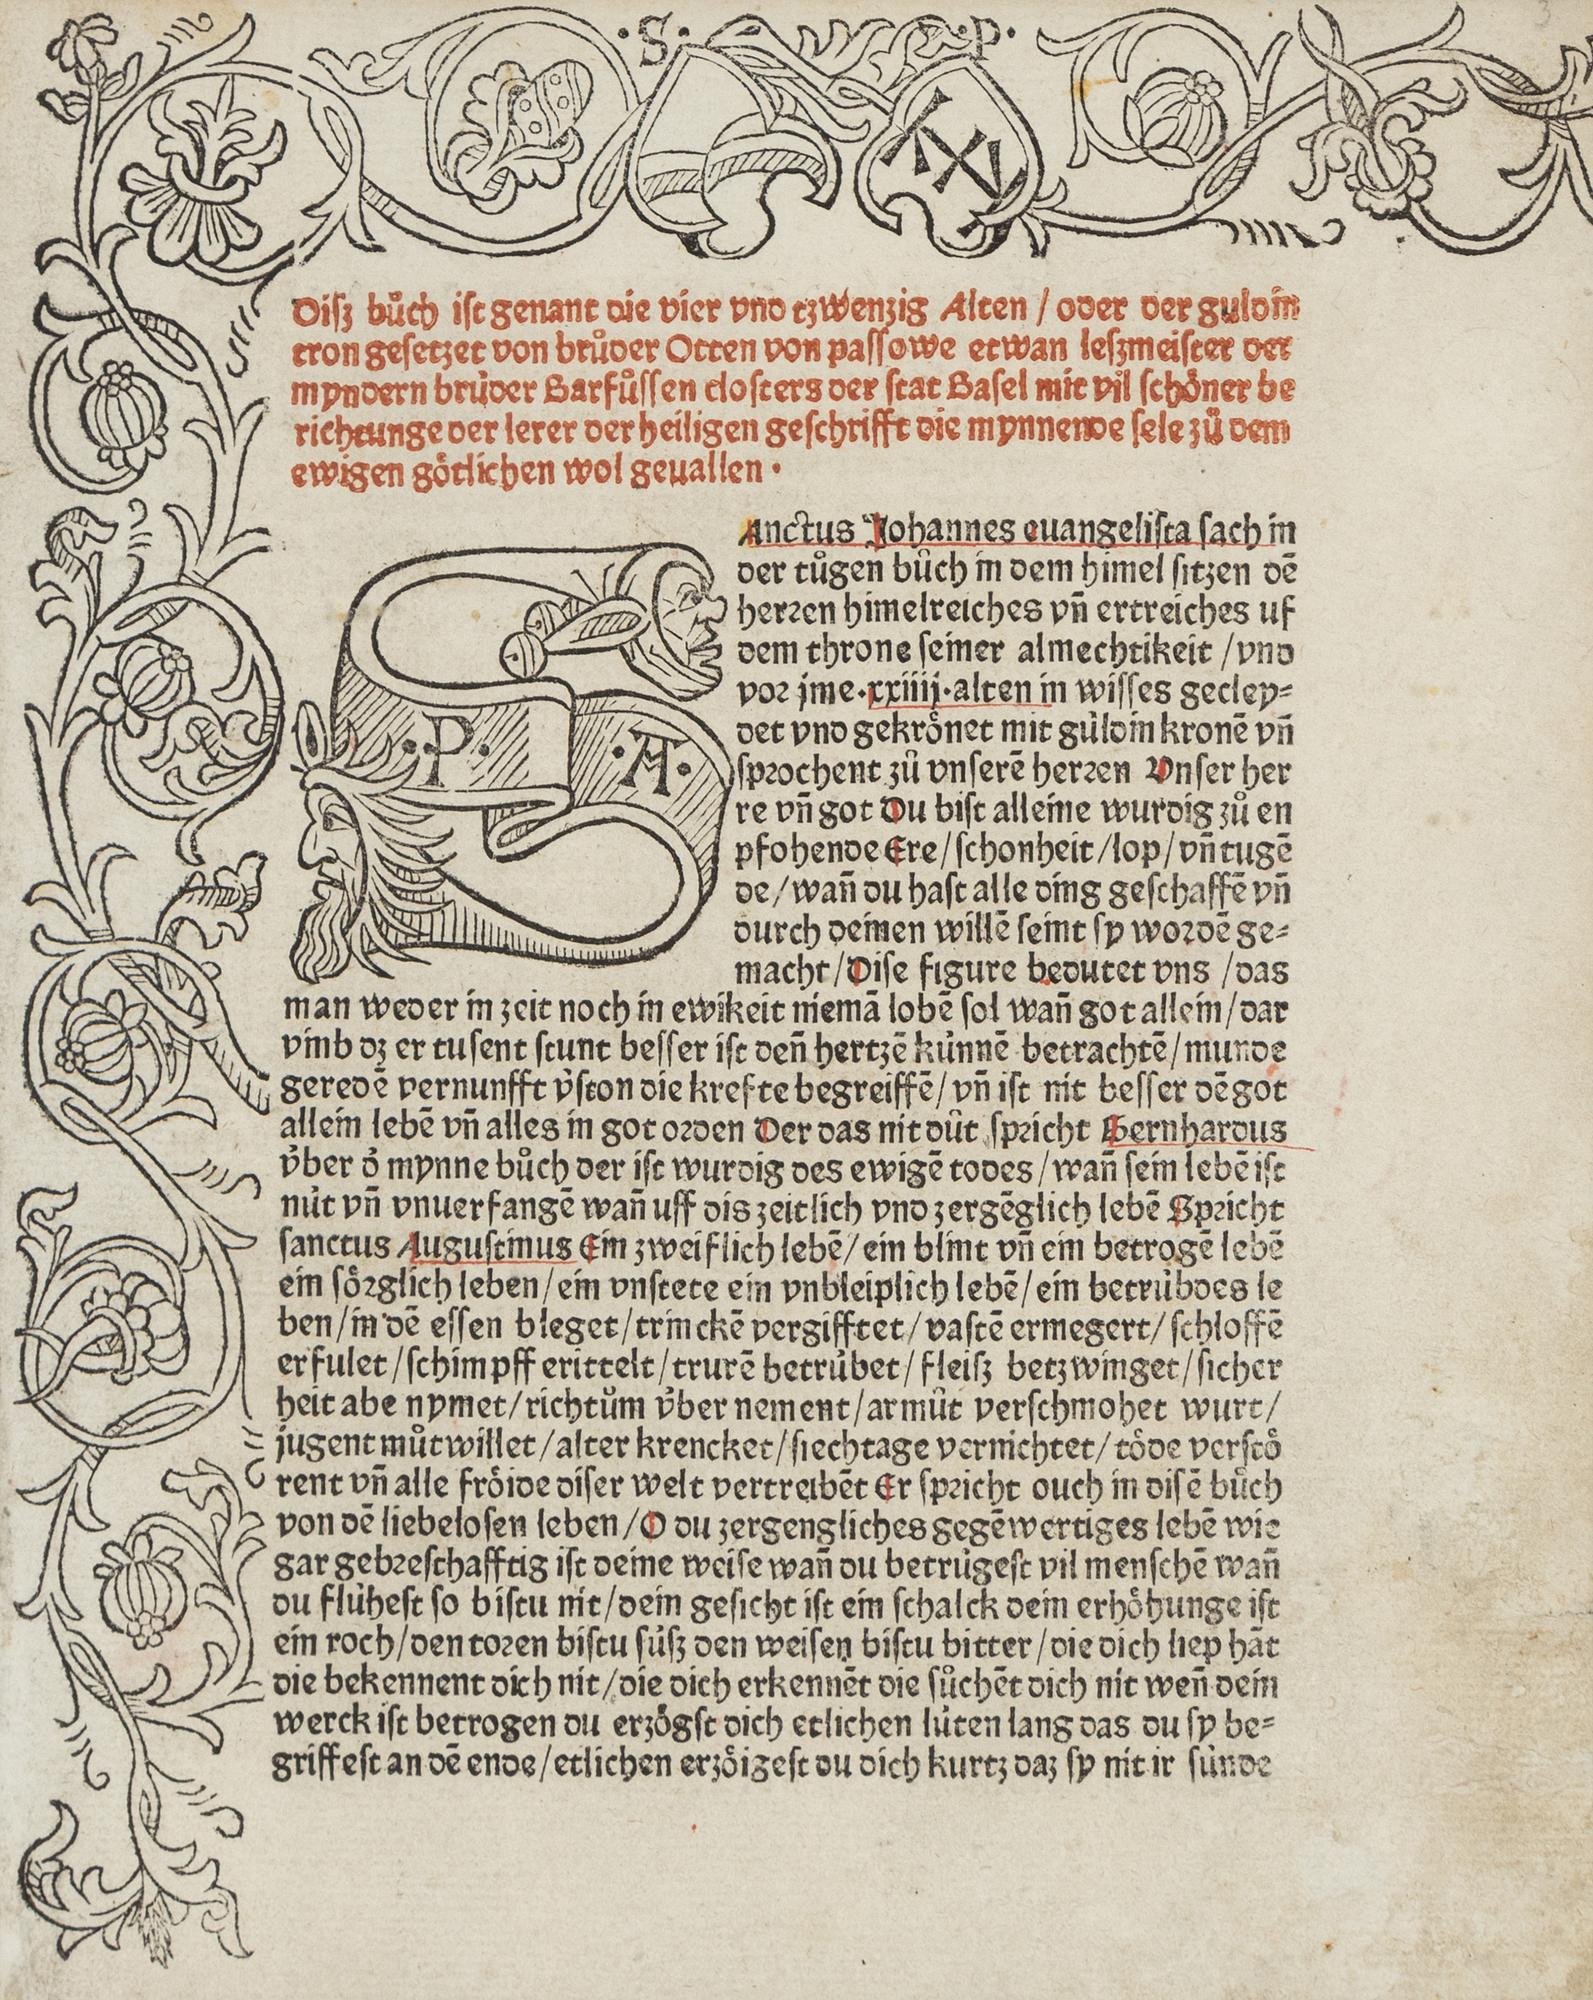 ·S· ·P·
Disz bůch ist genant die vier vnd tzwenzig Alten / oder der guldin
tron gesetzet von brůder Otten von passowe etwan leszmeister der
myndern brůder Barfůssen closters der stat Basel mit vil schöner be
richtunge der lerer der heiligen geschrifft die mynnende sele zů dem
ewigen götlichen wol geuallen ·
anctus Johannes euangelista sach in
der tůgen bůch in dem himel sitzen dē
herren himelreiches vn̄ ertreiches uf
dem throne seiner almechtikeit / vnd
vor jme · xxiiij · alten in wisses gecley=
det vnd gekrönet mit guldin kronē vn̄
sprochent zů vnserē herren Vnser her
re vn̄ got Du bist alleine wurdig zů en
pfohende Ere / schonheit / lop / vn̄ tugē
de / wan̄ du hast alle ding geschaffē vn̄
durch deinen willē seint sy wordē ge=
·P· ·A·
macht / Dise figure bedutet vns / das
man weder in zeit noch in ewikeit niemā lobē sol wan̄ got allein / dar
vmb dz er tusent stunt besser ist den̄ hertzē kúnnē betrachtē / munde
geredē vernunfft v̓ston die krefte begreiffē / vn̄ ist nit besser dē got
allein lebē vn̄ alles in got orden Der das nit důt spricht Bernhardus
v̓ber d̓ mynne bůch der ist wurdig des ewigē todes / wan̄ sein lebē ist
nút vn̄ vnuerfangē wan̄ uff dis zeitlich vnd zergēglich lebē Spricht
sanctus Augustinus Ein zweiflich lebē / ein blint vn̄ ein betrogē lebē
ein sörglich leben / ein vnstete ein vnbleiplich lebē / ein betrúbdes le
ben / in dē essen bleget / trinckē vergifftet / vastē ermegert / schloffē
erfulet / schimpff erittelt / trurē betrúbet / fleisz betzwinget / sicher
heit abe nymet / richtům v̓ber nement / armůt verschmohet wurt /
jugent můtwillet / alter krencket / siechtage vernichtet / töde verstö
rent vn̄ alle fröide diser welt vertreibēt Er spricht ouch in disē bůch
von dē liebelosen leben / O du zergengliches gegēwertiges lebē wie
gar gebreschafftig ist deine weise wan̄ du betrúgest vil menschē wan̄
du flúhest so bistu nit / dein gesicht ist ein schalck dein erhöhunge ist
ein roch / den toren bistu súsz den weisen bistu bitter / die dich liep hāt
die bekennent dich nit / die dich erkennēt die sůchēt dich nit wen̄ dein
werck ist betrogen du erzögst dich etlichen lúten lang das du sy be=
griffest an dē ende / etlichen erzöigest du dich kurtz daz sy nit ir súnde